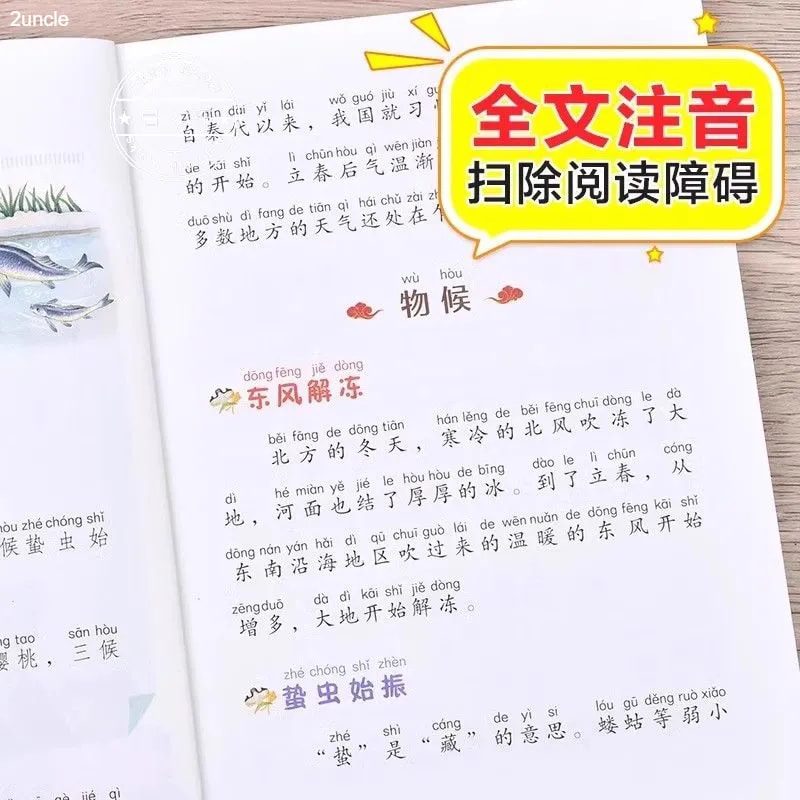 2uncle
全文注音
扫除阅读障碍
zì qín dài yǐ lái wǒ guó jiù xí
自秦代以来，我国就习
de kāi shǐ lì chūn hòu qì wēn jiàn
的开始。立春后气温渐
duō shù dì fang de tiān qì hái chǔ zài
多数地方的天气还处在
wù hòu
物候
dōng fēng jiě dòng
东风解冻
běi fāng de dōng tiān hán lěng de běi fēng chuī dòng le dà
北方的冬天，寒冷的北风吹冻了大
dì hé miàn yě jié le hòu hòu de bīng dào le lì chūn cóng
地，河面也结了厚厚的冰。到了立春，从
dōng nán yán hǎi dì qū chuī guò lái de wēn nuǎn de dōng fēng kāi shǐ
东南沿海地区吹过来的温暖的东风开始
zēng duō dà dì kāi shǐ jiě dòng
增多，大地开始解冻。
zhé chóng shǐ zhèn
蛰虫始振
zhé shì cáng de yì si lóu gū děng ruò xiǎo
“蛰”是“藏”的意思。蝼蛄等弱小
hòu zhé chóng shǐ
候蛰虫始
yīng tao sān hòu
樱桃，三候
gè jié qì